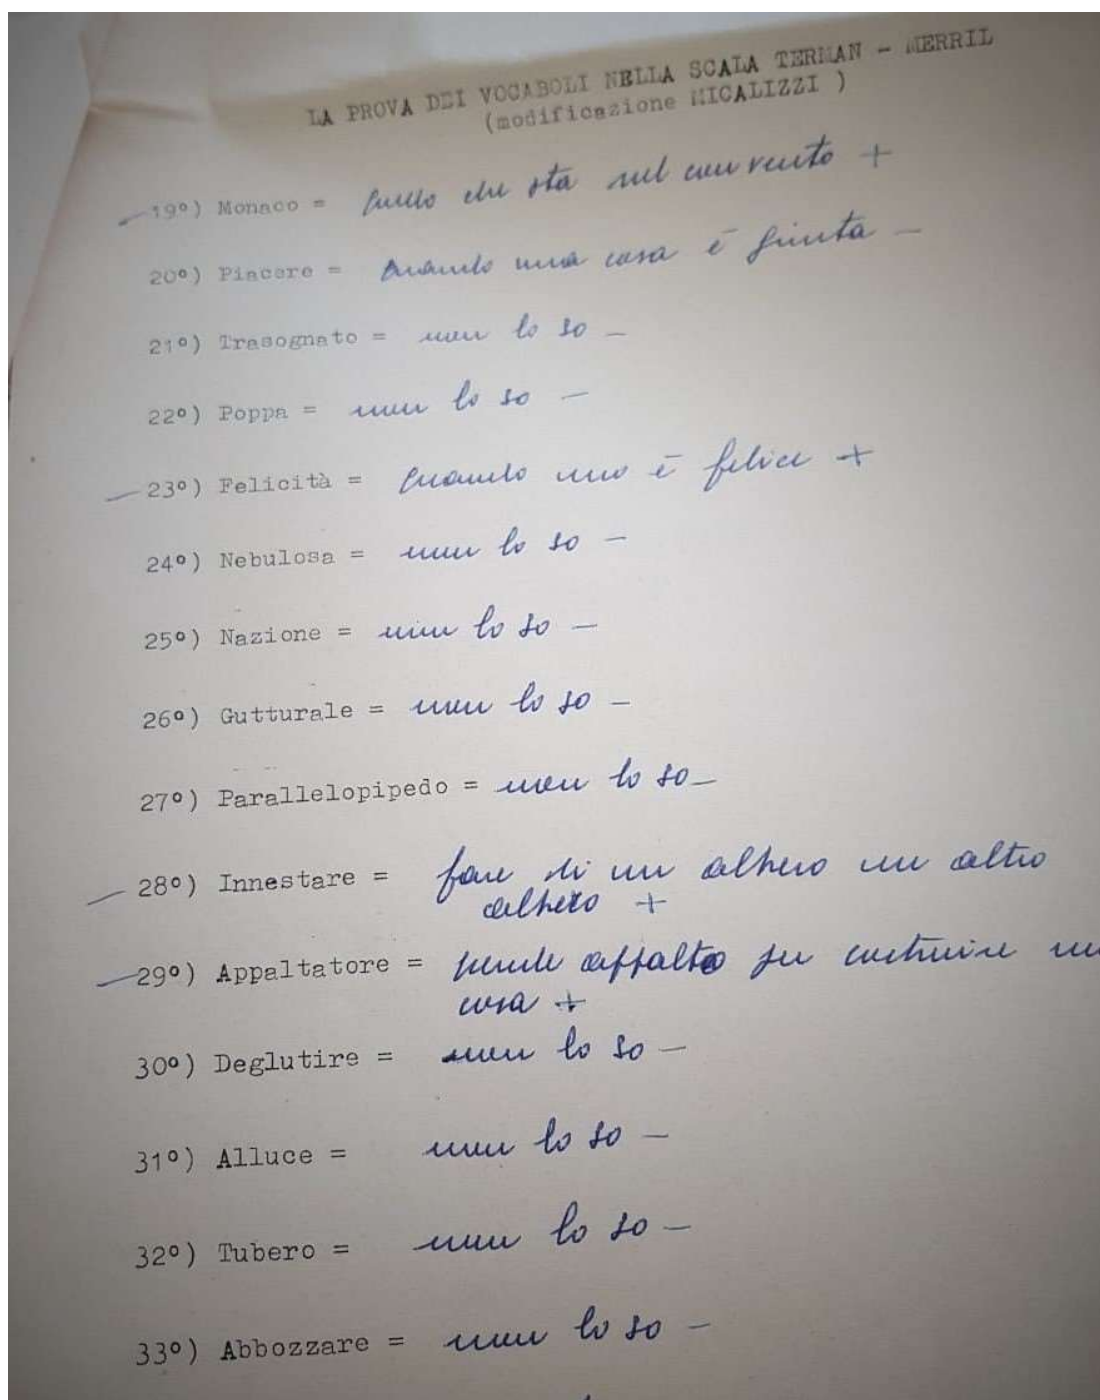 LA PROVA DEI VOCABOLI NELLA SCALA TERMAN - MERRIL
(modificazione MICALIZZI )
19°) Monaco = quello che sta nel convento +
20°) Piacere = quando una cosa è giunta -
21°) Trasognato = non lo so -
22°) Poppa = non lo so -
23°) Felicità = quando uno è felice +
24°) Nebulosa = non lo so -
25°) Nazione = non lo so -
26°) Gutturale = non lo so -
27°) Parallelopipedo = non lo so -
28°) Innestare = fare di un albero un altro
albero +
29°) Appaltatore = prende appalto per costruire
cosa +
30°) Deglutire = non lo so -
31°) Alluce = non lo so -
32°) Tubero = non lo so -
33°) Abbozzare = non lo so -